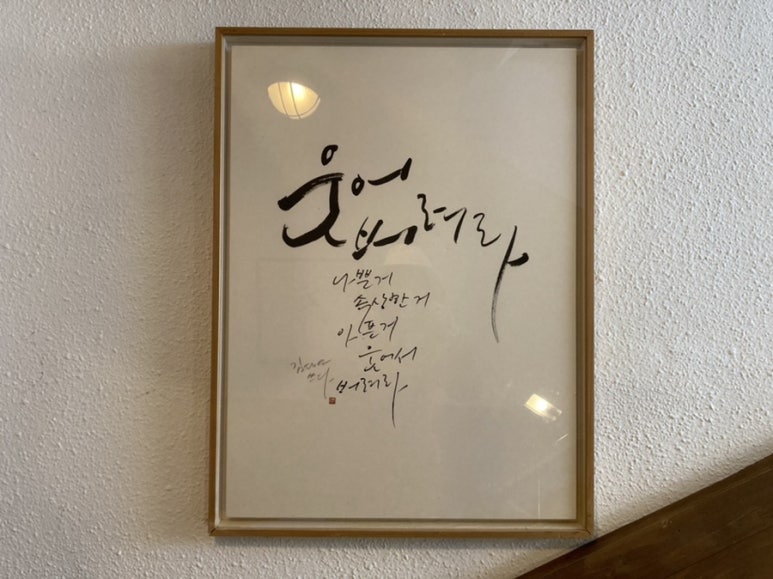 웃어
버려라
나쁠거
속상한거
아픈거
웃어서
버려라
쓰다